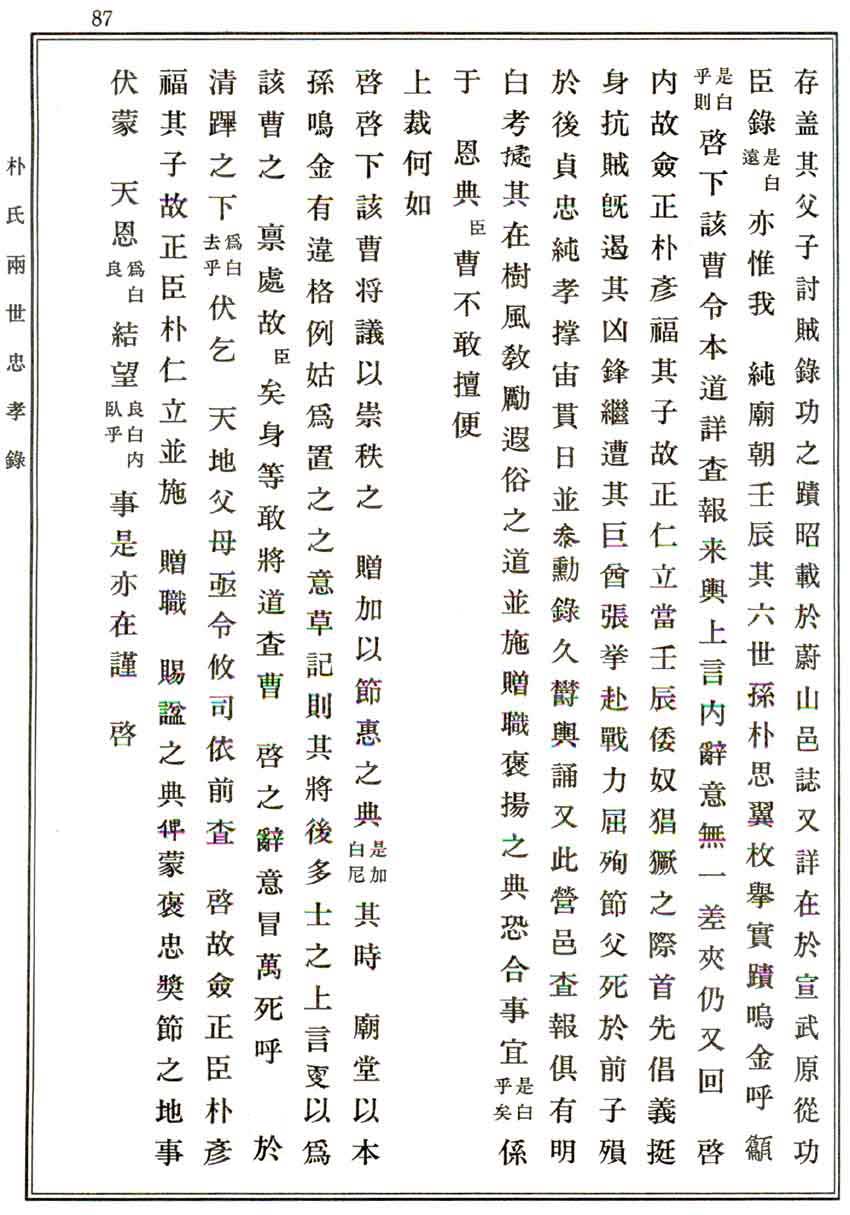 87
存盖其父子討賊錄功之蹟昭載於蔚山邑誌又詳在於宣武原從功
臣錄是白遠亦惟我 純廟朝壬辰其六世孫朴思翼枚擧實蹟鳴金呼籲
是白乎則 啓下該曹令本道詳査報来輿上言内辭意無一差爽仍又回 啓
内故僉正朴彥福其子故正仁立當壬辰倭奴猖獗之際首先倡義挺
身抗賊旣遏其凶鋒繼遭其巨酋張拳赴戰力屈殉節父死於前子殞
於後貞忠純孝撑宙貫日並叅勳錄久欝輿誦又此營邑査報俱有明
白考據其在樹風敎勵遐俗之道並施贈職褒揚之典恐合事宜是白乎矣係
于 恩典臣曹不敢擅便
上裁何如
啓啓下該曹将議以崇秩之 贈加以節惠之典是加白尼其時 廟堂以本
孫鳴金有違格例姑爲置之之意草記則其將後多士之上言更以爲
該曹之 禀處故臣矣身等敢將道査曹 啓之辭意冒萬死呼 於
清蹕之下爲白去乎伏乞 天地父母亟令攸司依前査 啓故僉正臣朴彥
福其子故正臣朴仁立並施 贈職 賜謚之典俾蒙褒忠奬節之地事
伏蒙 天恩爲白良結望良白内臥乎事是亦在謹 啓
朴氏兩世忠孝錄